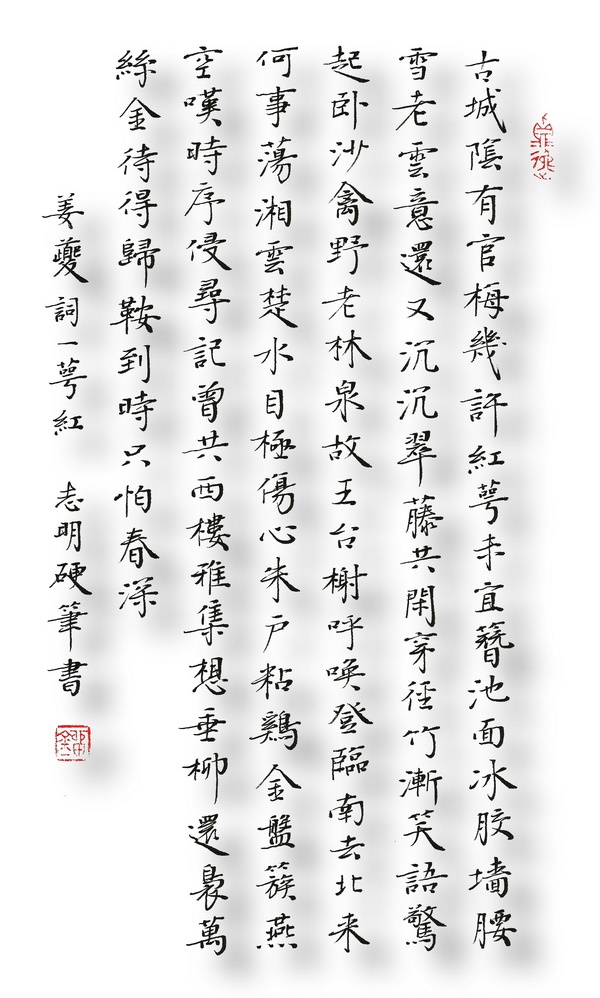 古城陰有官梅幾許紅萼未宜簪池面冰胶墻腰
雪老雲意還又沉沉翠藤共閑穿径竹漸笑語驚
起卧沙禽野老林泉故王台榭呼唤登臨南去北来
何事蕩湘雲楚水目極傷心朱户粘鷄金盤簇燕
空嘆時序侵尋記曾共西樓雅集想垂柳還裊萬
絲金待得歸鞍到時只怕春深
姜夔詞一萼紅 志明硬筆書